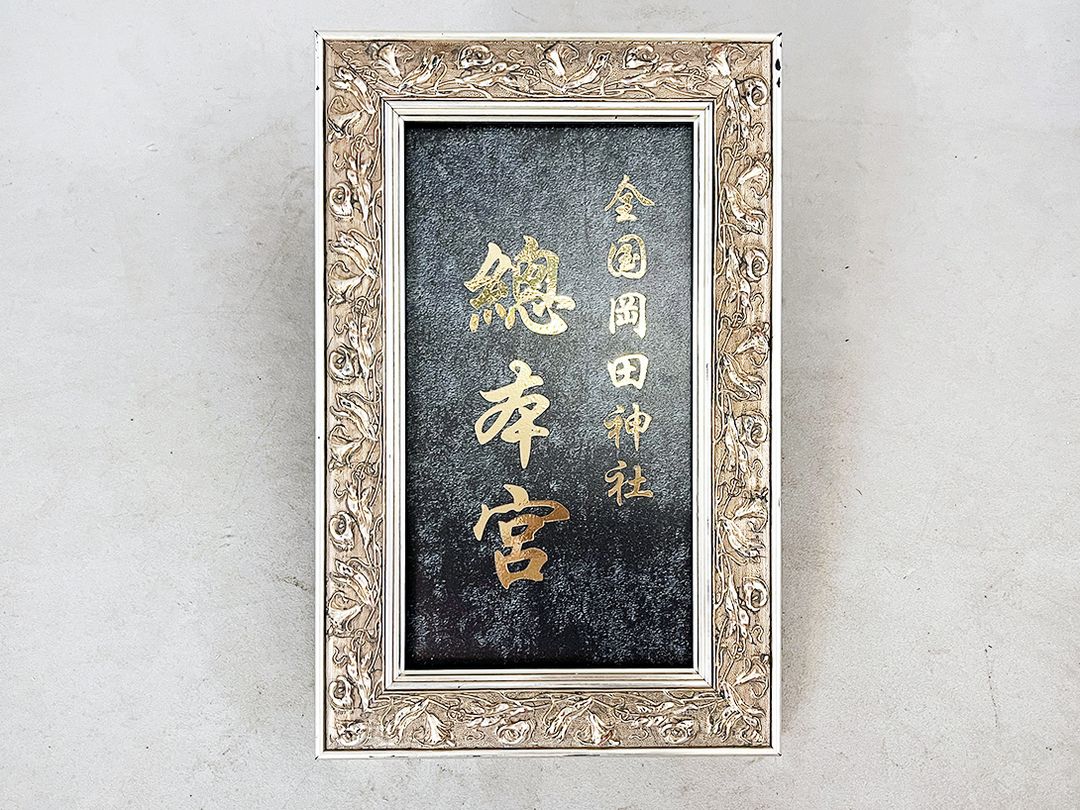 全国岡田神社
總本宮